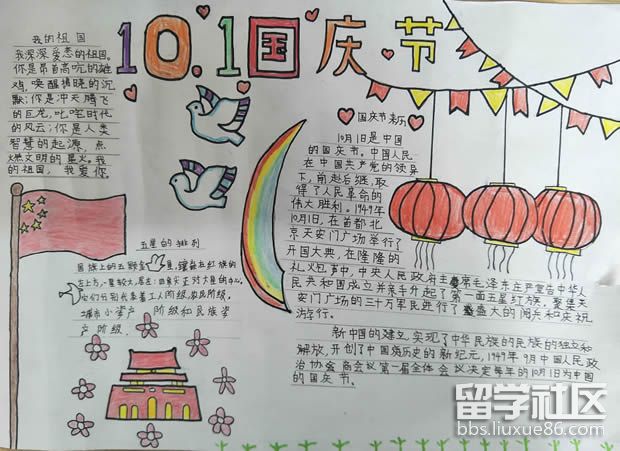 10.1国庆节
我的祖国
我深深爱恋的祖国。
你是昂首高吭的雄
鸡,唤醒拂晓的沉
默;你是冲天腾飞
的巨龙,叱咤时代
的风云;你是人类
智慧的起源,点
燃文明的星火。我
的祖国,我爱你。
五星的排列
国旗上的五颗
星,镶嵌在红旗的
城市小资产阶级和民族资
产阶级.
国庆节来历
10月1日是中国
的国庆节。中国人民
在中国共产党的领导
下,前赴后继,取
得了人民革命的
伟大胜利。1949年
10月1日,在首都北
京天安门广场举行了
开国大典,在隆隆的
礼炮声中,中央人民政府主席毛泽东庄严宣告中华人
民共和国成立并亲手升起了第一面五星红旗。聚集天
安门广场的三十万军民进行了盛大的阅兵和庆祝
游行。
新中国的建立,实现了中华民族的民族的独立和
解放,开创了中国历史的新纪元,1949年9月中国人民政
治协商会议第一届全体会议决定每年的10月1日为中国
的国庆节。
留学社区
bbs.liuxue86.com